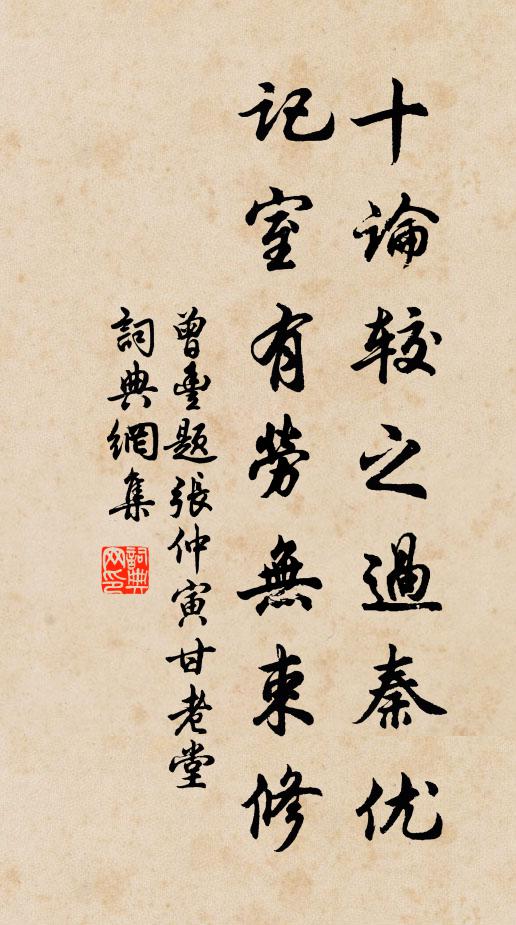 十論较之過秦优
記室有勞無束修
曾豊题張仲寅甘老堂
詞典網集
詞典网印